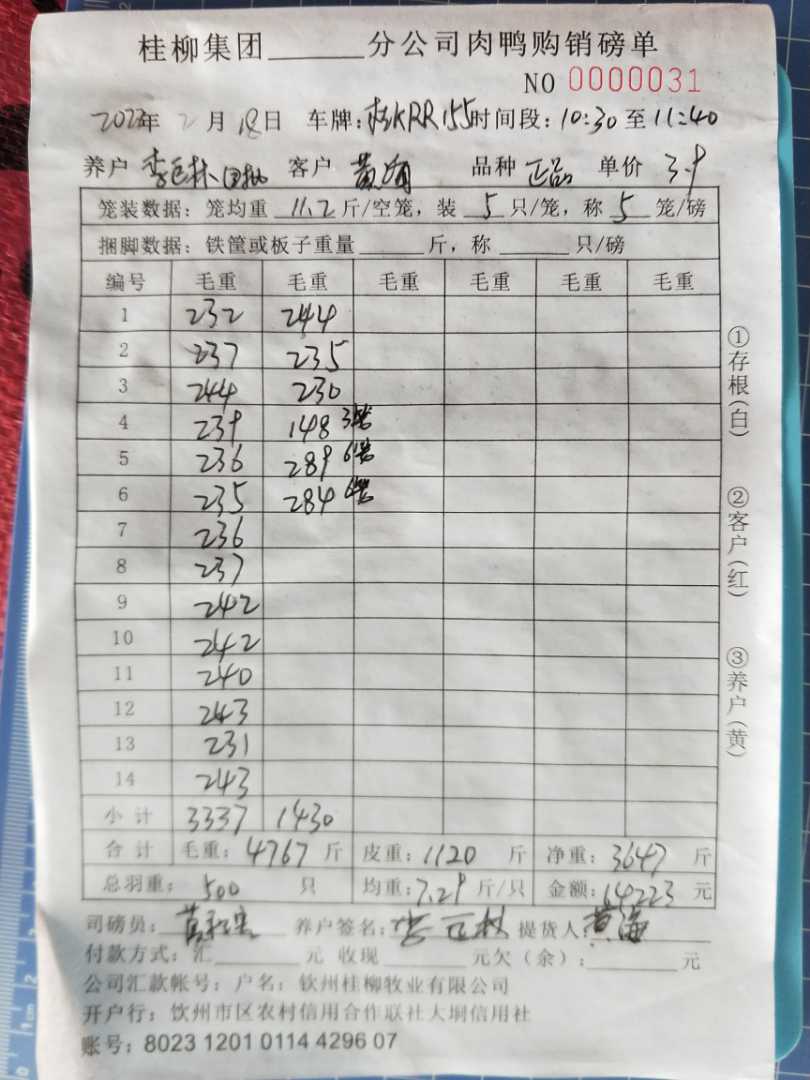 桂柳集团______分公司肉鸭购销磅单
NO 0000031
2023年 2月 18日 车牌:桂KRR155 时间段:10:30至11:40
养户 李 林 客户 黄海 品种 正品 单价 3.9
笼装数据:笼均重 11.2 斤/空笼,装 5 只/笼,称 5 笼/磅
捆脚数据:铁筐或板子重量______斤,称______只/磅
编号 毛重 毛重 毛重 毛重 毛重 毛重
1 232 244
2 237 235
3 244 230
4 239 148 3笼
5 236 289 6笼
6 235 284 6笼
7 236
8 237
9 242
10 242
11 240
12 243
13 231
14 243
小计 3337 1430
合计 毛重:4767 斤 皮重:1120 斤 净重:3647 斤
总羽重:500 只 均重:7.29 斤/只 金额:14223 元
司磅员: 养户签名:李 林 提货人:黄海
付款方式:汇______元 收现______元欠(余):______元
公司汇款帐号:户名:钦州桂柳牧业有限公司
开户行:钦州市区农村信用合作联社大垌信用社
账号:8023 1201 0114 4296 07
①存根(白)
②客户(红)
③养户(黄)